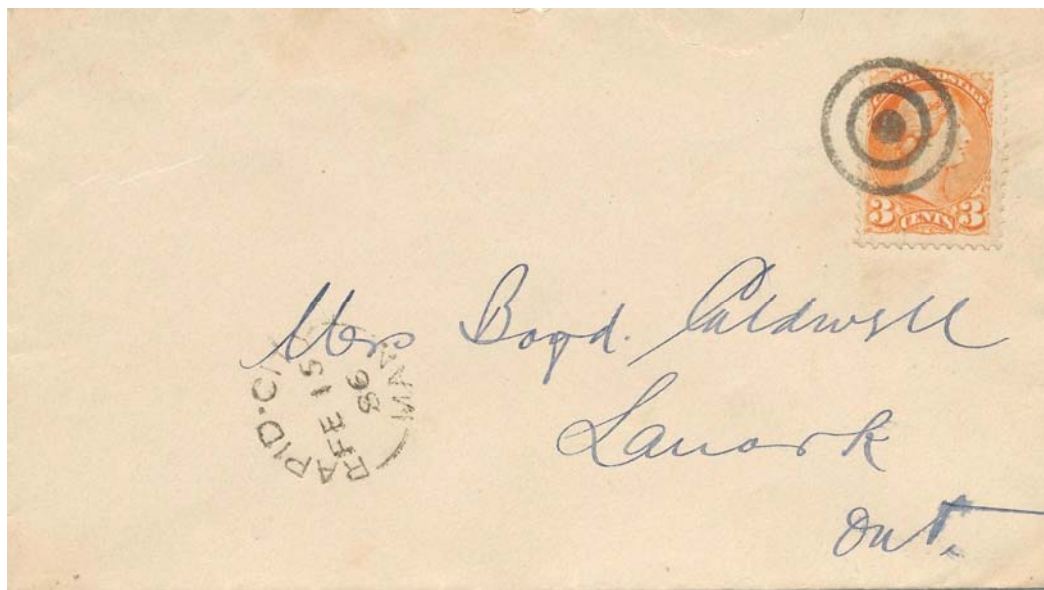 CANADA POSTAGE
3 CENTS 3
Mrs Boyd. Caldwell
Lanark
Ont.
RAPID-CITY
FE 15
86
MAN